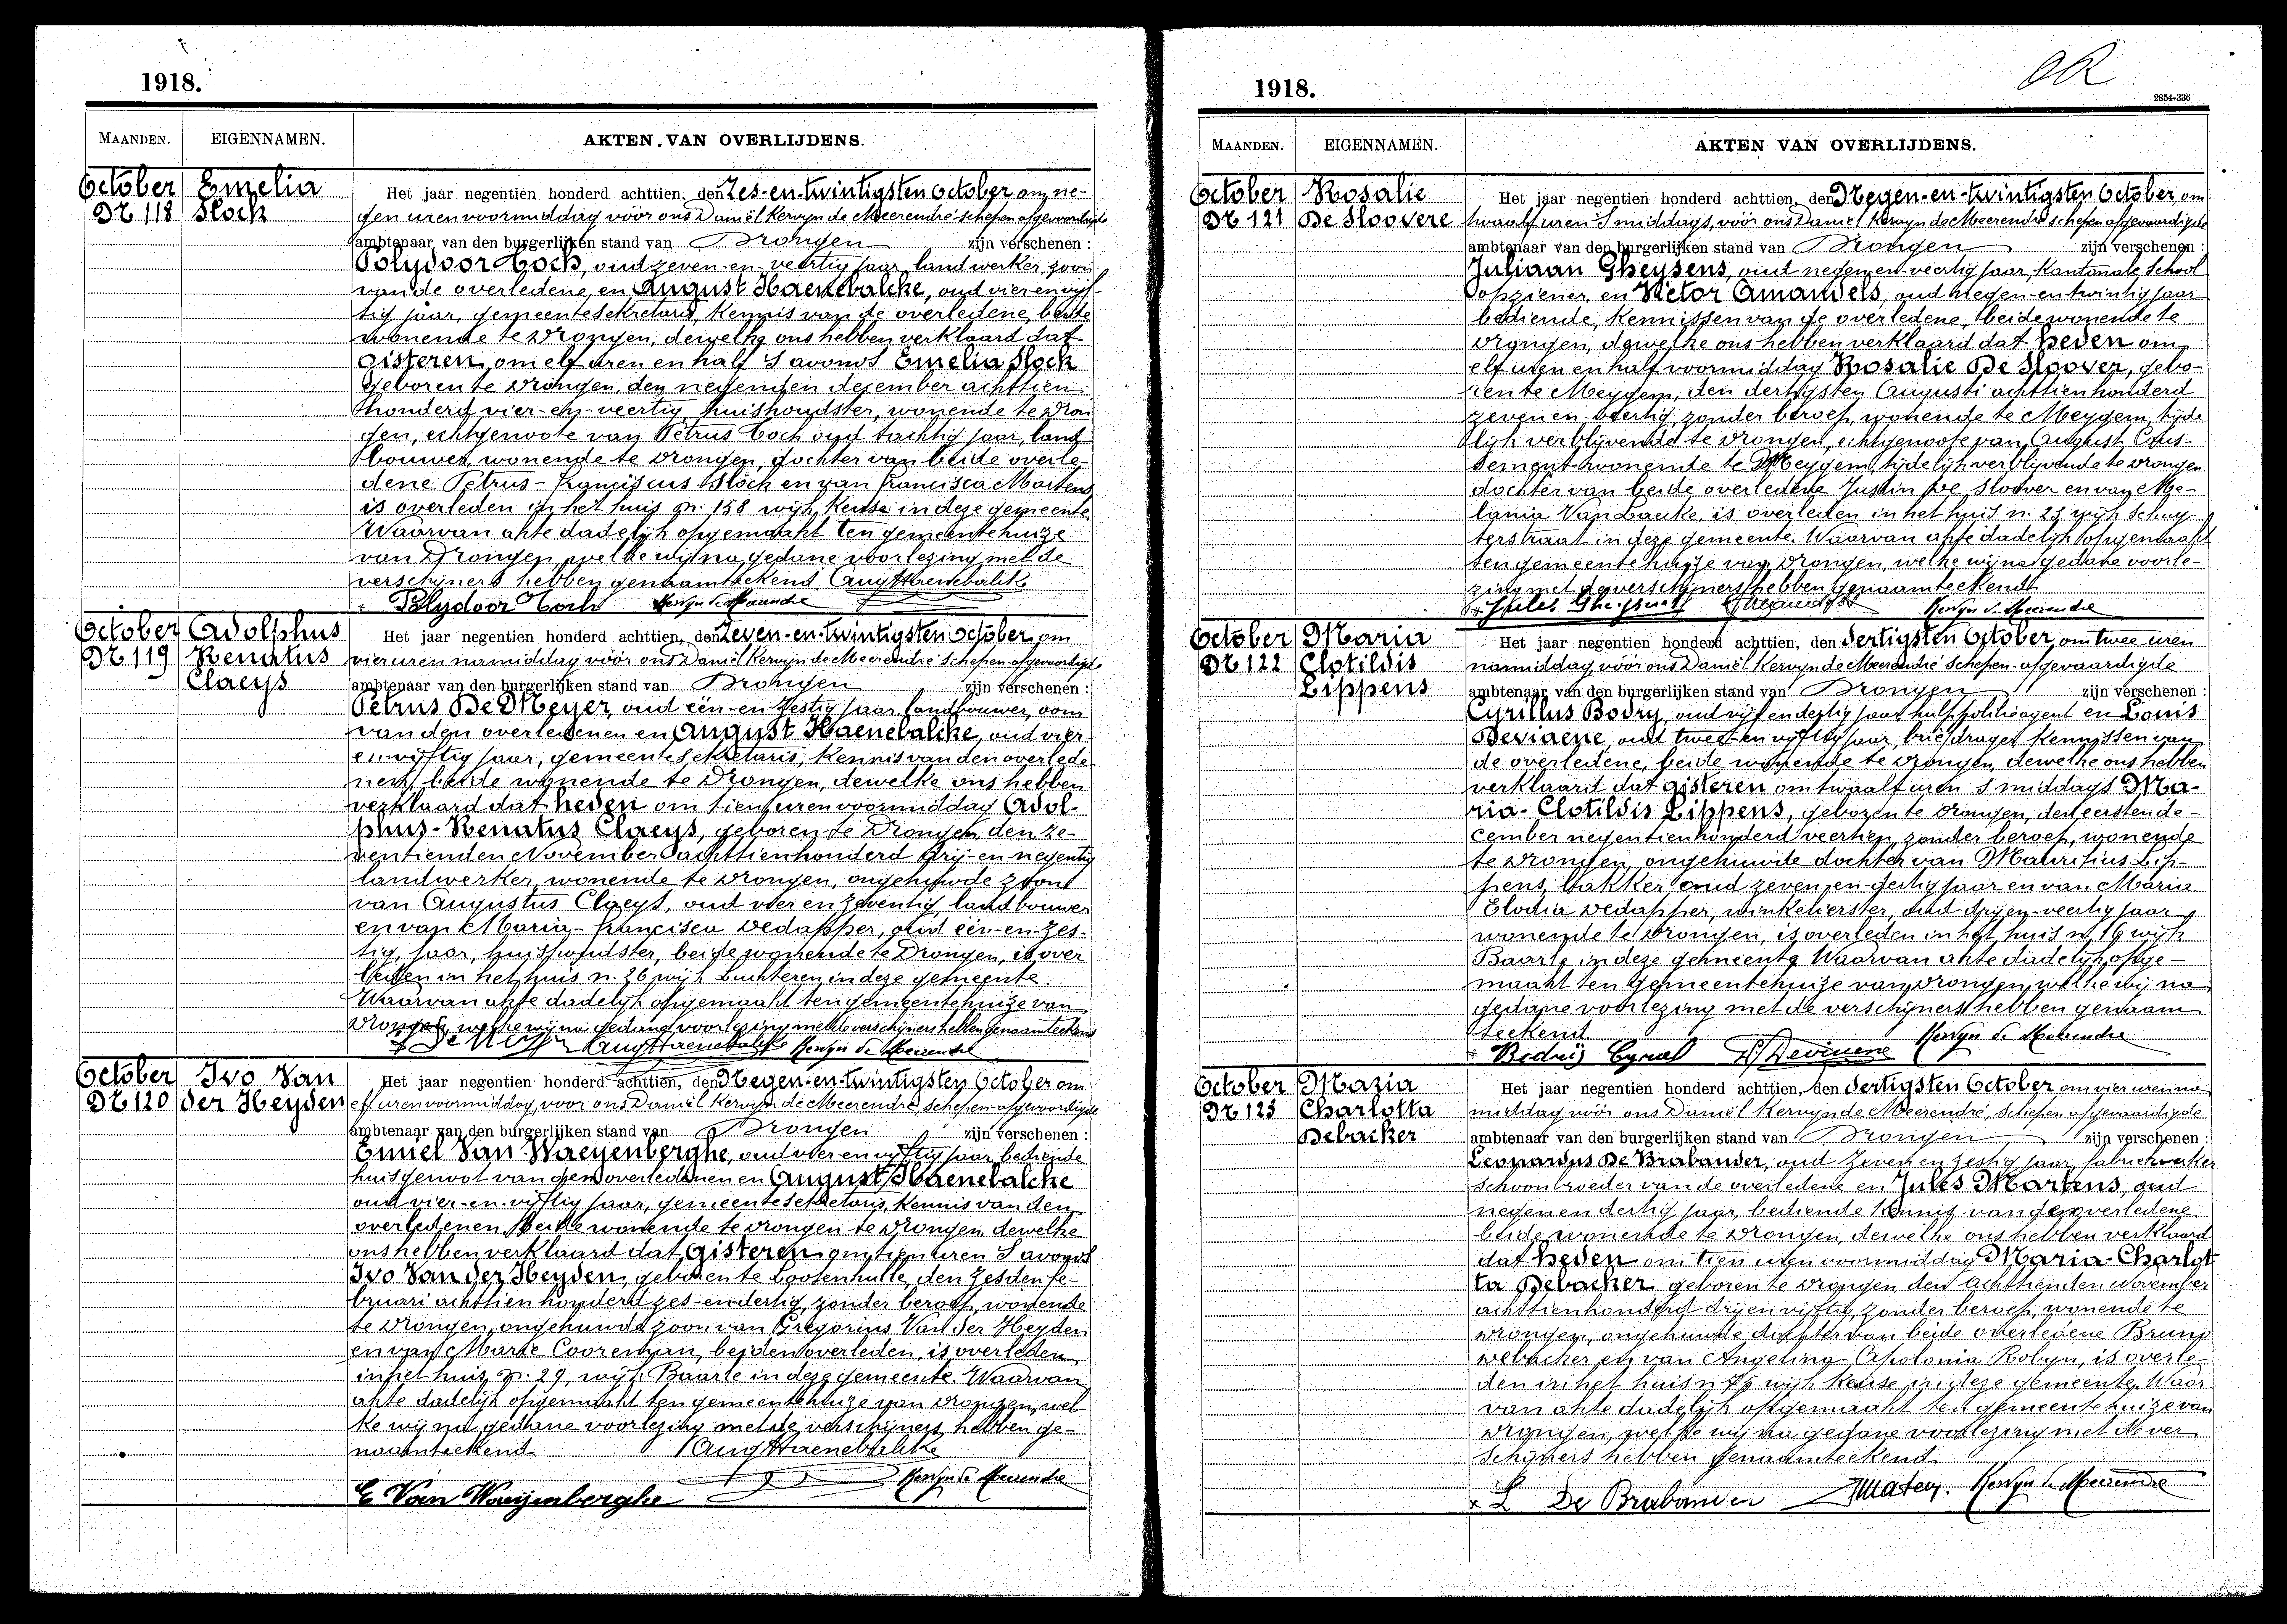 1918.
MAANDEN. EIGENNAMEN. AKTEN VAN OVERLIJDENS.
October Emelia
Nr 118 Slock
Het jaar negentien honderd achttien, den Zes-en-twintigsten October om ne-
gen uren voormiddag vóór ons Daniël Kervyn de Meerendré schepen afgevaardigde
ambtenaar van den burgerlijken stand van Drongen zijn verschenen :
Polydoor Coch, oud zeven-en-veertig jaar, landwerker, zoon
van de overledene, en August Haenebalcke, oud vier en vijf-
tig jaar, gemeentesekretaris, kennis van de overledene, beide
wonende te Drongen, dewelke ons hebben verklaard dat
gisteren, om elf uren en half 's avonds Emelia Slock
geboren te Drongen, den negensten december achttien
honderd vier-en-veertig, huishoudster, wonende te Dron
gen, echtgenoote van Petrus Coch oud tachtig jaar, land
bouwer, wonende te Drongen, dochter van beide overle-
dene Petrus-Franciscus Slock en van Francisca Martens
is overleden in het huis nr. 158 wijk Keuse in deze gemeente.
Waarvan akte dadelijk opgemaakt ten gemeentehuize
van Drongen, welke wij na gedane voorlezing met de
verschijners hebben genaamteekend Aug Haenebalcke
Polydoor Coch Kervyn de Meerendre
October Adolphus
Nr 119 Renatus
Claeys
Het jaar negentien honderd achttien, den Zeven-en-twintigsten October om
vier uren namiddag vóór ons Daniël Kervyn de Meerendré schepen-afgevaardigde
ambtenaar van den burgerlijken stand van Drongen zijn verschenen :
Petrus De Meyer, oud één-en-zestig jaar, landbouwer, oom
van den overledenen en August Haenebalcke, oud vier-
en-vijftig jaar, gemeentesekretaris, kennis van den overlede
nen, beide wonende te Drongen, dewelke ons hebben
verklaard dat heden om tien uren voormiddag Adol-
phus-Renatus Claeys, geboren te Drongen, den ze-
ventienden November achttienhonderd drij-en-negentig
landwerker, wonende te Drongen, ongehuwde zoon
van Augustus Claeys, oud vier en zeventig, landbouwer
en van Maria-Francisca Dedapper, oud één-en-zes-
tig, jaar, huishoudster, beide wonende te Drongen, is over
leden in het huis n. 26 wijk Luchteren in deze gemeente.
Waarvan akte dadelijk opgemaakt ten gemeentehuize van
Drongen, welke wij na gedane voorlezing met de verschijners hebben genaamteekend
De Meyer Aug Haenebalcke Kervyn de Meerendre
October Ivo Van
Nr 120 der Heyden
Het jaar negentien honderd achttien, den Negen-en-twintigsten October om
elf uren voormiddag, voor ons Daniël Kervyn de Meerendré, schepen-afgevaardigde
ambtenaar van den burgerlijken stand van Drongen zijn verschenen :
Emiel Van Waeyenberghe, oud vier en vijftig jaar, bediende
huisgenoot van den overledenen en August Haenebalcke
oud vier-en-vijftig jaar, gemeentesekretaris, kennis van den
overledenen, beide wonende te Drongen te Drongen, dewelke
ons hebben verklaard dat gisteren om tien uren 's avonds
Ivo Van der Heyden, geboren te Lootenhulle, den zesden fe-
bruari achttien honderd zes-en-dertig, zonder beroep, wonende
te Drongen, ongehuwde zoon van Gregorius Van der Heyden
en van Marie Cooreman, beiden overleden, is overleden
in het huis n. 29, wijk Baarle in deze gemeente. Waarvan
akte dadelijk opgemaakt ten gemeentehuize van Drongen, wel-
ke wij na gedane voorlezing met de verschijners hebben ge-
naamteekend Aug Haenebalcke
E Van Waeijenberghe Kervyn de Meerendre
OR
1918.
2854-336
MAANDEN. EIGENNAMEN. AKTEN VAN OVERLIJDENS.
October Rosalie
Nr 121 De Sloovere
Het jaar negentien honderd achttien, den Negen-en-twintigsten October, om
twaalf uren 's middags, vóór ons Daniel Kervyn de Meerendré schepen afgevaardigde
ambtenaar van den burgerlijken stand van Drongen zijn verschenen :
Juliaan Gheysens, oud negen-en-veertig jaar, Kantonale School
opziener, en Victor Amandels, oud negen-en-twintig jaar
bediende, kennissen van de overledene, beide wonende te
Drongen, dewelke ons hebben verklaard dat heden om
elf uren en half voormiddag Rosalie De Sloover, gebo-
ren te Meygem, den dertigsten Augusti achttienhonderd
zeven en veertig, zonder beroep, wonende te Meygem, tijde
lijk verblijvende te Drongen, echtgenoote van August Cous-
sement wonende te Meygem, tijdelijk verblijvende te Drongen
dochter van beide overledene Justin De Sloover en van Me-
lania Van Laecke, is overleden in het huis n. 23 wijk Schuy-
terstraat in deze gemeente. Waarvan akte dadelijk opgemaakt
ten gemeentehuize van Drongen, welke wij na gedane voorle-
zing met de verschijners hebben genaamteekend
Jules Gheysens Kervyn de Meerendre
October Maria
Nr 122 Clotildis
Lippens
Het jaar negentien honderd achttien, den dertigsten October, om twee uren
namiddag vóór ons Daniël Kervyn de Meerendré schepen-afgevaardigde
ambtenaar van den burgerlijken stand van Drongen zijn verschenen :
Cyrillus Bodry, oud vijf en dertig jaar, hulppolitieagent en Louis
Deviaene, oud twee-en-vijftig jaar, briefdrager, kennissen van
de overledene, beide wonende te Drongen, dewelke ons hebben
verklaard dat gisteren om twaalf uren 's middags Ma-
ria-Clotildis Lippens, geboren te Drongen, den eersten de-
cember negentienhonderd veertien, zonder beroep, wonende
te Drongen, ongehuwde dochter van Mauritius Lip-
pens, bakker, oud zeven-en-dertig jaar en van Maria
Elodia Dedapper, winkelierster, oud drij-en-veertig jaar
wonende te Drongen, is overleden in het huis n. 19 wijk
Baarle in deze gemeente. Waarvan akte dadelijk opge-
maakt ten gemeentehuize van Drongen, welke wij na
gedane voorlezing met de verschijners hebben genaam
teekend
Bodrij Cyriel Deviaene Kervyn de Meerendre
October Maria
Nr 123 Charlotta
Debacker
Het jaar negentien honderd achttien, den dertigsten October om vier uren na
middag vóór ons Daniël Kervyn de Meerendré, schepen afgevaardigde
ambtenaar van den burgerlijken stand van Drongen zijn verschenen :
Leonardus De Brabander, oud zeven en zestig jaar, fabriekwerker
schoonbroeder van de overledene en Jules Martens, oud
negen en dertig jaar, bediende kennis van de overledene
beide wonende te Drongen, dewelke ons hebben verklaard
dat heden om tien uren voormiddag Maria-Charlot
ta Debacker, geboren te Drongen, den achttienden November
achttienhonderd drij en vijftig, zonder beroep, wonende te
Drongen, ongehuwde dochter van beide overledene Bruno
Debacker en van Angelina-Apolonia Robyn, is overle-
den in het huis n wijk Keuse in deze gemeente. Waar
van akte dadelijk opgemaakt ten gemeentehuize van
Drongen, welke wij na gedane voorlezing met de ver
schijners hebben genaamteekend
L De Brabander Kervyn de Meerendre